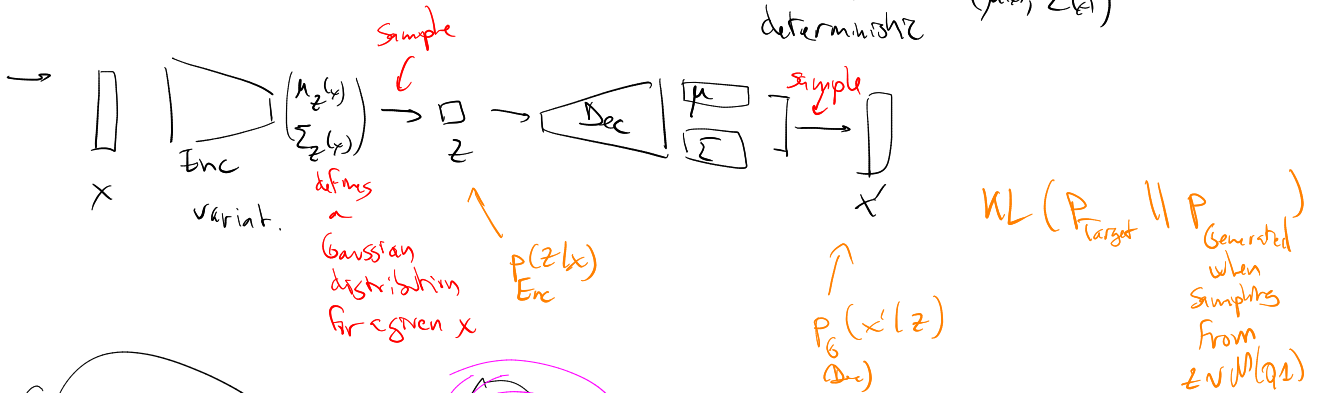 determinishz
Sample
sample
μ_z(x)
Σ_z(x)
Dec
μ
Σ
Enc
z
x
x'
variat.
defines
a
Gaussian
distribution
for a given x
p(z|x)
Enc
p_G(x'|z)
(Dec)
KL(P_Target || P_Generated
when
sampling
from
z ~ N(0,1)
)